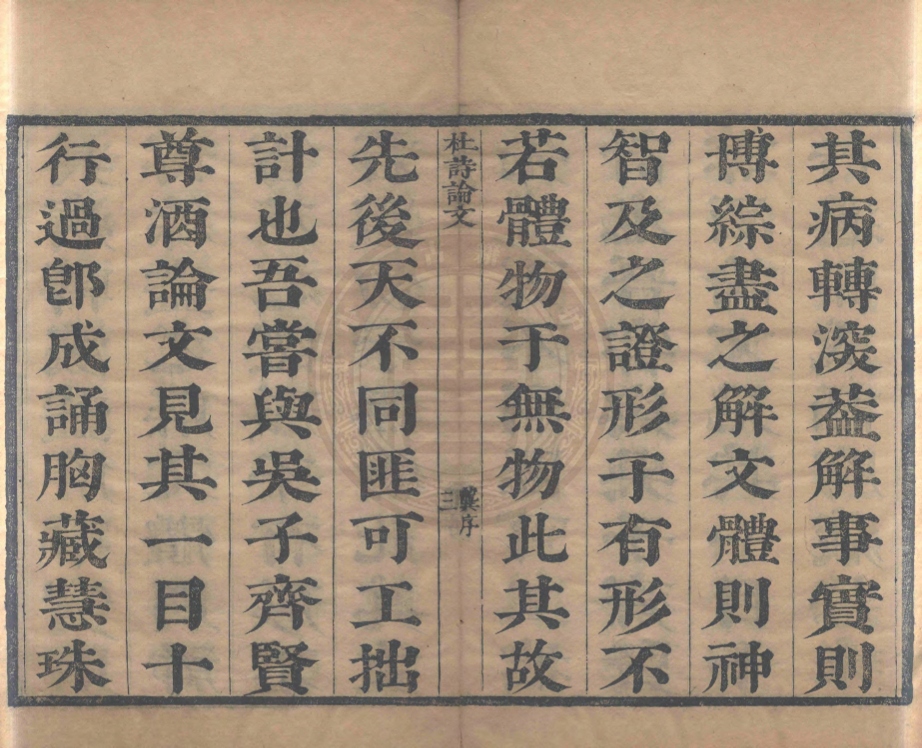 其病轉深葢解事實則
博綜盡之解文體則神
智及之證形于有形不
若體物于無物此其故
杜詩論文
龔序
三
先後天不同匪可工拙
計也吾嘗與吳子齊賢
尊酒論文見其一目十
行過卽成誦胸藏慧珠